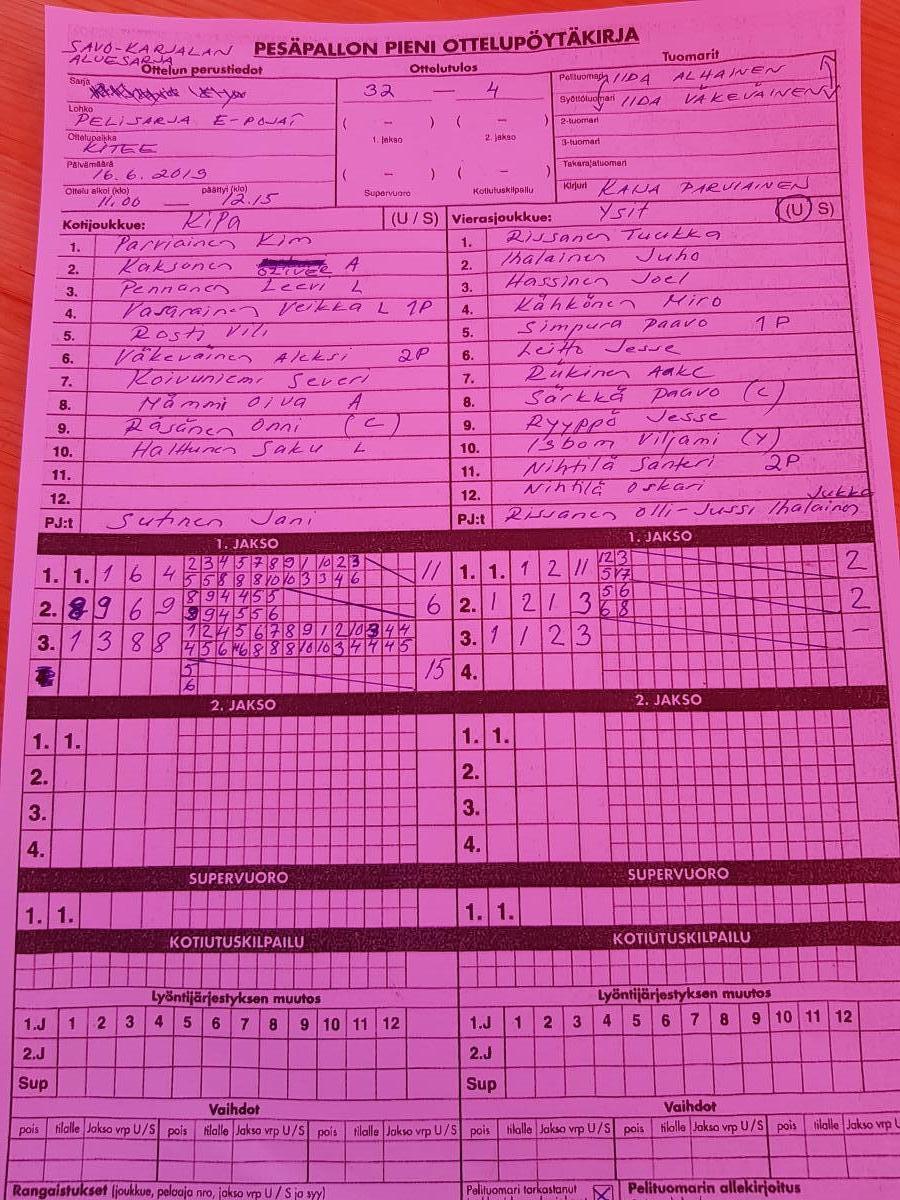 SAVO-KARJALAN
ALUESARJA
PESÄPALLON PIENI OTTELUPÖYTÄKIRJA
Ottelun perustiedot
Ottelutulos
Tuomarit
Sarja
32 — 4
Pelituomari IIDA ALHAINEN
Syöttötuomari IIDA VÄKEVÄINEN
Lohko
PELISARJA E-POJAT
( – ) ( – )
1. jakso 2. jakso
2-tuomari
3-tuomari
Ottelupaikka
KITEE
Takarajatuomari
Päivämäärä
16.6.2019
( – ) ( – )
Supervuoro Kotiutuskilpailu
Kirjuri KAIJA PARVIAINEN
Ottelu alkoi (klo) päättyi (klo)
11.00 — 12.15
Kotijoukkue: KiPa (U / S)
1. Parviainen Kim
2. Kaksonen OLIVER A
3. Pennanen Leevi L
4. Vasarainen Veikka L 1P
5. Rosti Vili
6. Väkeväinen Aleksi 2P
7. Koivuniemi Severi
8. Mämmi Oiva A
9. Räsänen Onni (C)
10. Halttunen Saku L
11.
12.
PJ:t Sutinen Jani
Vierasjoukkue: Ysit (U / S)
1. Rissanen Tuukka
2. Ihalainen Juho
3. Hassinen Joel
4. Kähkönen Miro
5. Simpura Paavo 1P
6. Leitto Jesse
7. Rükinen Aake
8. Särkkä Paavo (C)
9. Ryyppö Jesse
10. Isbom Viljami (Y)
11. Nihtilä Santeri 2P
12. Nihtilä Oskari
PJ:t Rissanen Olli-Jussi Jukka Ihalainen
1. JAKSO
1. 1. 1 6 4
2 3 4 5 7 8 9 1 10 2 3
5 5 8 8 8 10 10 3 3 4 6
11
2. 8 9 6 9
8 9 4 4 5 5
9 9 4 5 5 6
6
3. 1 3 8 8
1 2 4 5 6 7 8 9 1 2 10 3 4 4
4 5 6 6 8 8 8 10 10 3 4 4 4 5
5
6
15
1. JAKSO
1. 1. 1 2 11
12 3
5 7
2
2. 1 2 1 3
5 6
6 8
2
3. 1 1 2 3 –
4.
2. JAKSO
1. 1.
2.
3.
4.
2. JAKSO
1. 1.
2.
3.
4.
SUPERVUORO
1. 1.
SUPERVUORO
1. 1.
KOTIUTUSKILPAILU
KOTIUTUSKILPAILU
Lyöntijärjestyksen muutos
1.J 1 2 3 4 5 6 7 8 9 10 11 12
2.J
Sup
Lyöntijärjestyksen muutos
1.J 1 2 3 4 5 6 7 8 9 10 11 12
2.J
Sup
Vaihdot
pois tilalle Jakso vrp U/S pois tilalle Jakso vrp U/S pois tilalle Jakso vrp U/S
Vaihdot
pois tilalle Jakso vrp U/S pois tilalle Jakso vrp U/S pois tilalle Jakso vrp U
Rangaistukset (joukkue, pelaaja nro, jakso vrp U / S ja syy)
Pelituomari tarkastanut
Pelituomarin allekirjoitus